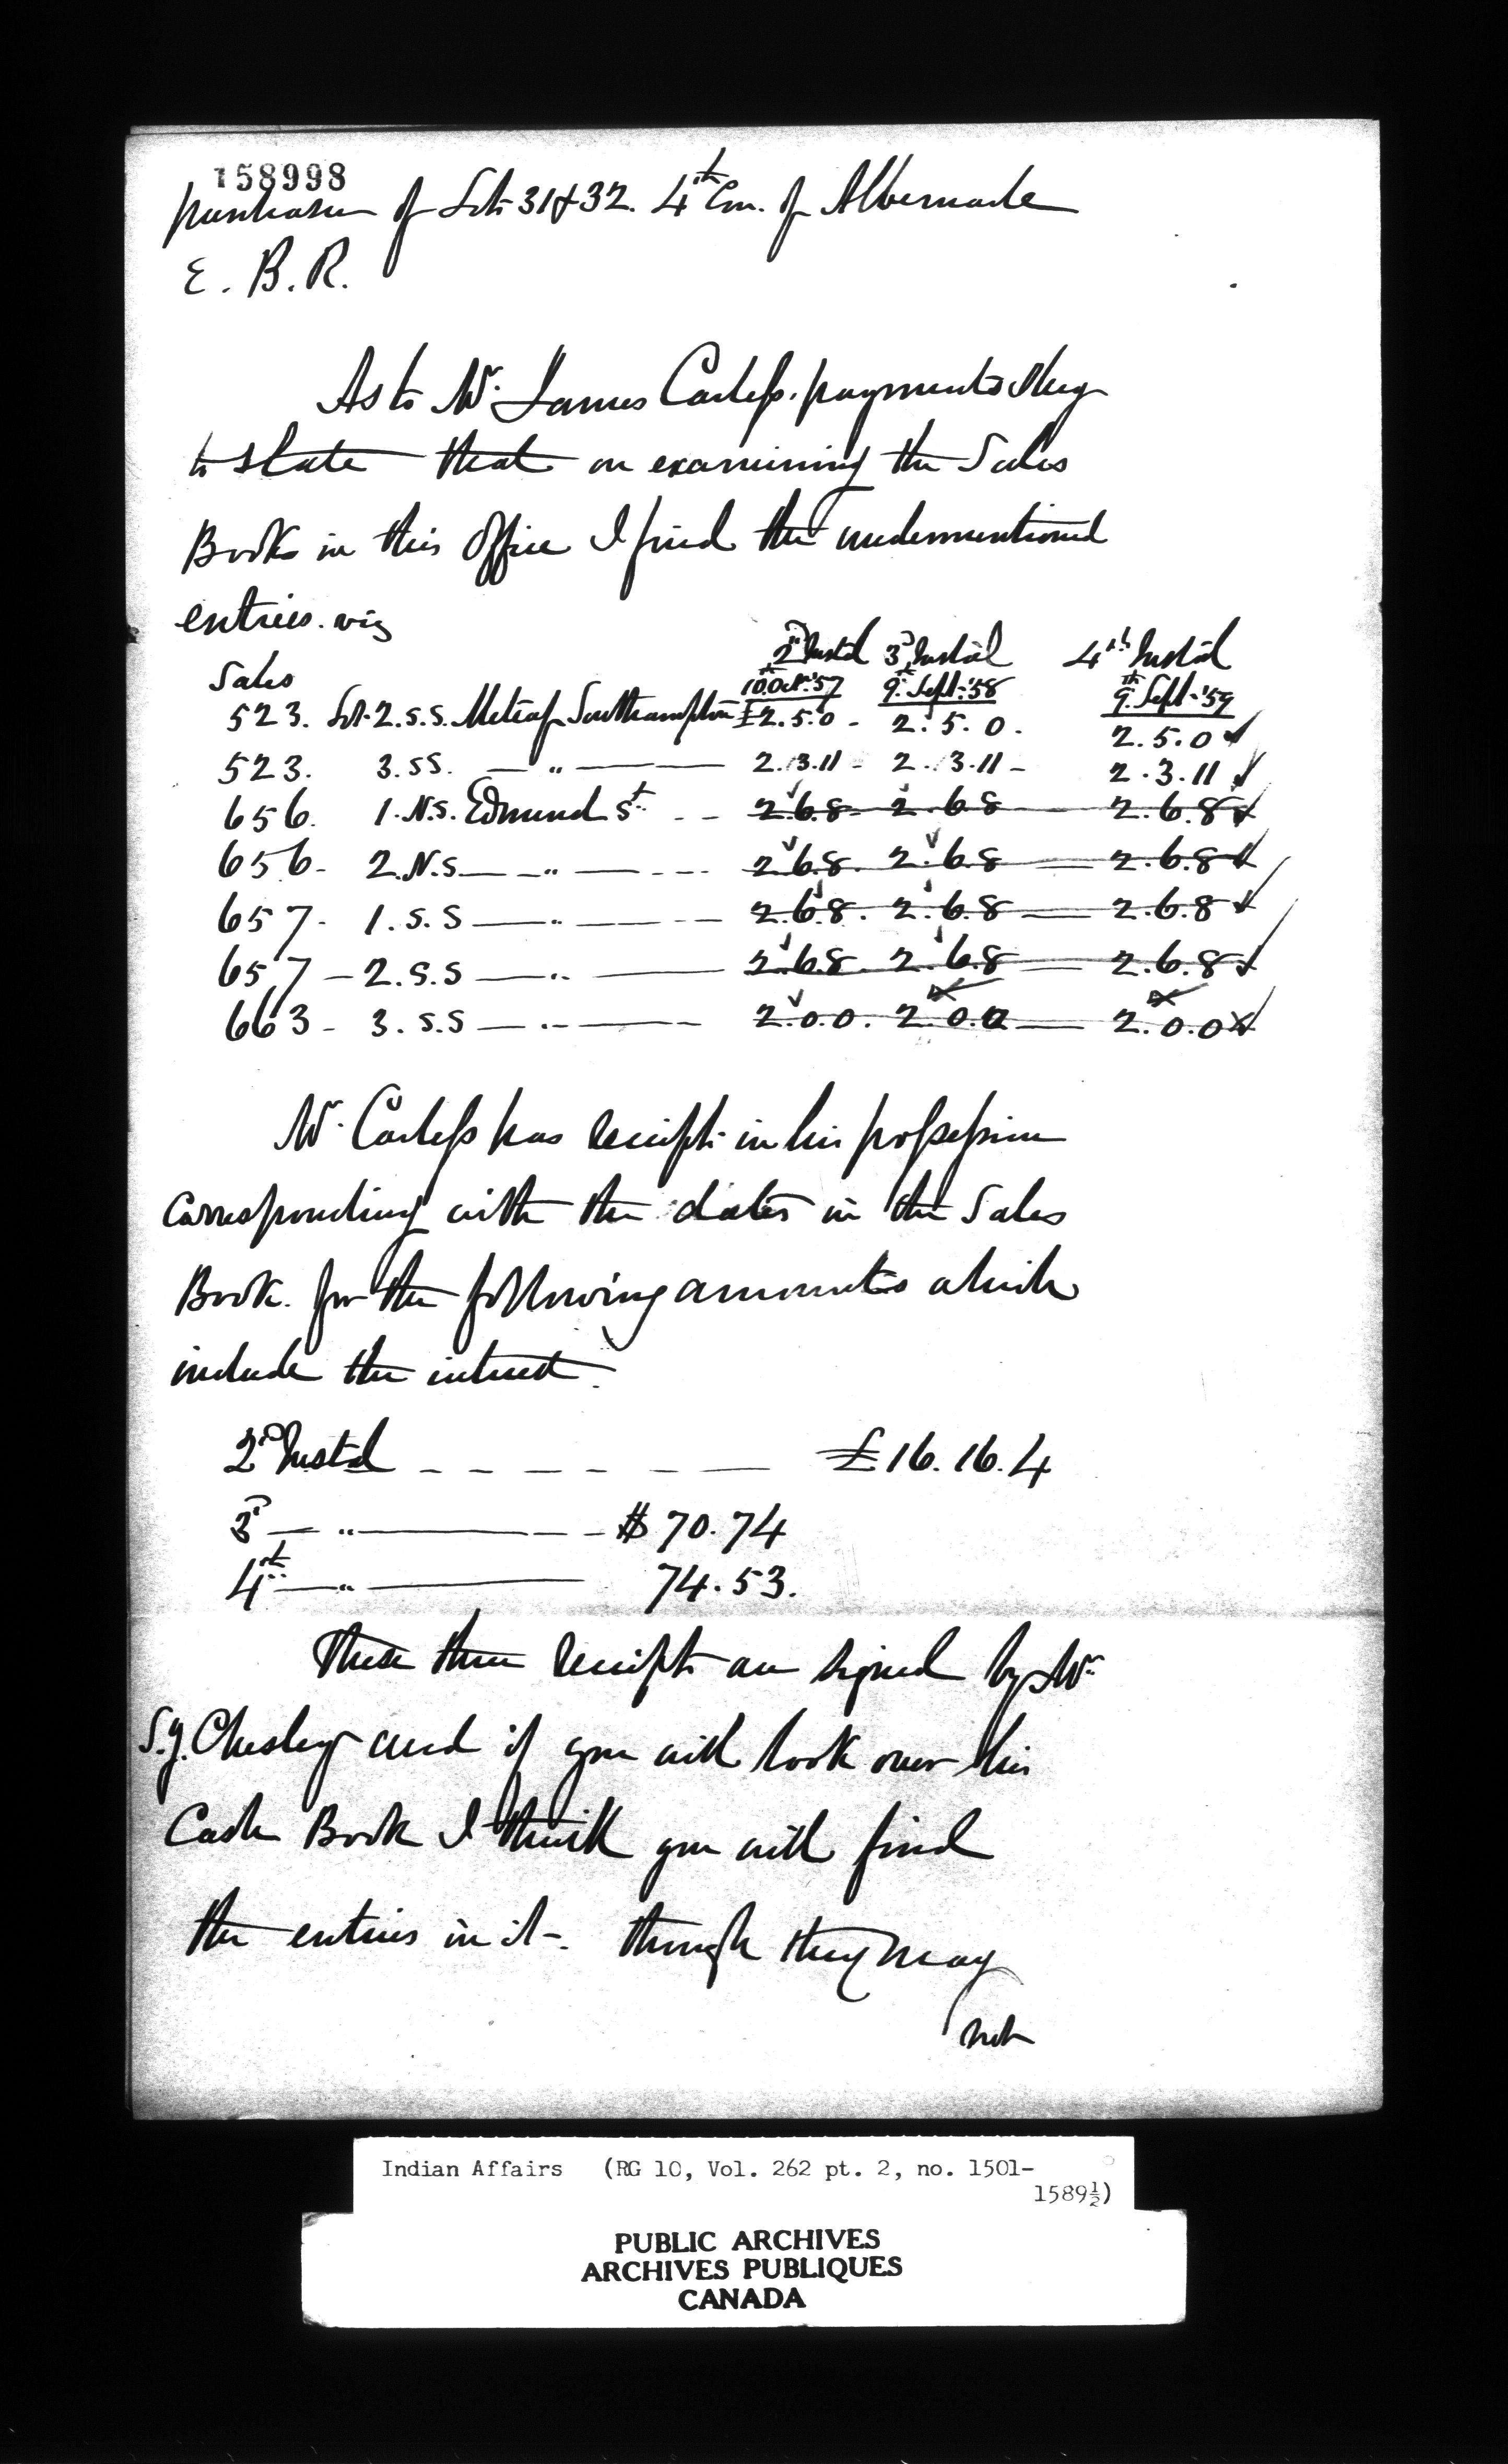 158998
purchaser of Lots 31 & 32. 4th Con. of Albermarle
E. B. R.
As to Mr. James Carless. payments I beg
to state that on examining the Sales
Books in this Office I find the undermentioned
entries. viz
2d Instal 3d Instal 4th Instal
Sales 10th Oct. '57 9th Sept. '58 9th Sept. '59
523. Lot. 2. S.S. Metcaf Southampton £2.5.0 - 2.5.0. 2.5.0
523. 3. SS. — „ — 2.3.11 - 2.3.11 - 2.3.11
656. 1. N.S. Edmund St. - - 2.6.8 - 2.6.8 — 2.6.8
656 - 2. N.S. — „ — 2.6.8. 2.6.8 — 2.6.8
657 - 1. S.S — „ — 2.6.8. 2.6.8 — 2.6.8
657 - 2. S.S — „ — 2.6.8. 2.6.8 — 2.6.8
663 - 3. S.S — „ — 2.0.0. 2.0.0 — 2.0.0
Mr. Carless has receipts in his possession
corresponding with the dates in the Sales
Book. for the following amounts which
include the interest.
2d Instal - - - - - — £16.16.4
3d — „ — - - $ 70.74
4th — „ — 74.53.
These three receipts are signed by Mr
S.Y. Chesley and if you will look over his
Cash Book I think you will find
the entries in it -. though they may
not
Indian Affairs (RG 10, Vol. 262 pt. 2, no. 1501-
1589½)
PUBLIC ARCHIVES
ARCHIVES PUBLIQUES
CANADA